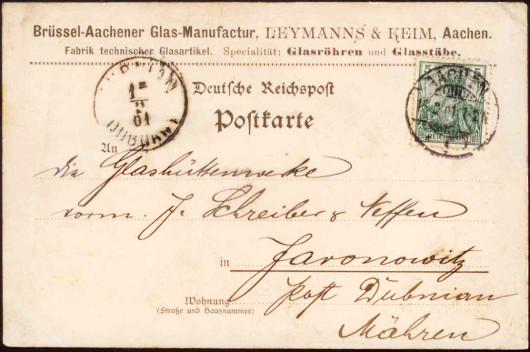 Brüssel-Aachener Glas-Manufactur, LEYMANNS & KEIM, Aachen.
Fabrik technischer Glasartikel. Specialität: Glasröhren und Glasstäbe.
Deutsche Reichspost
Postkarte
AACHEN
1
01
An
die Glashüttenwerke
vorm. J. Schreiber & Neffen
in Javonowitz
post Dubnian
Wohnung
(Straße und Hausnummer)
Mähren